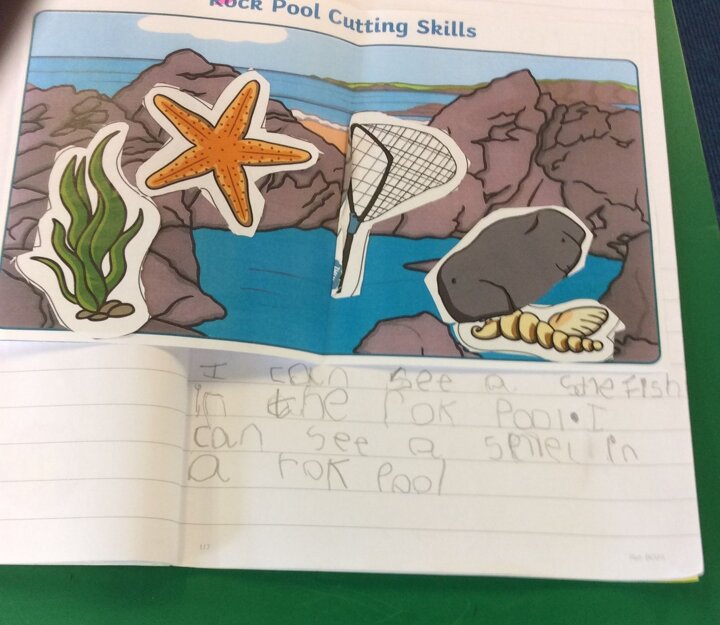 Rock Pool Cutting Skills
I can see a shefish
in the rok pool. I
can see a
in
a rok pool
117